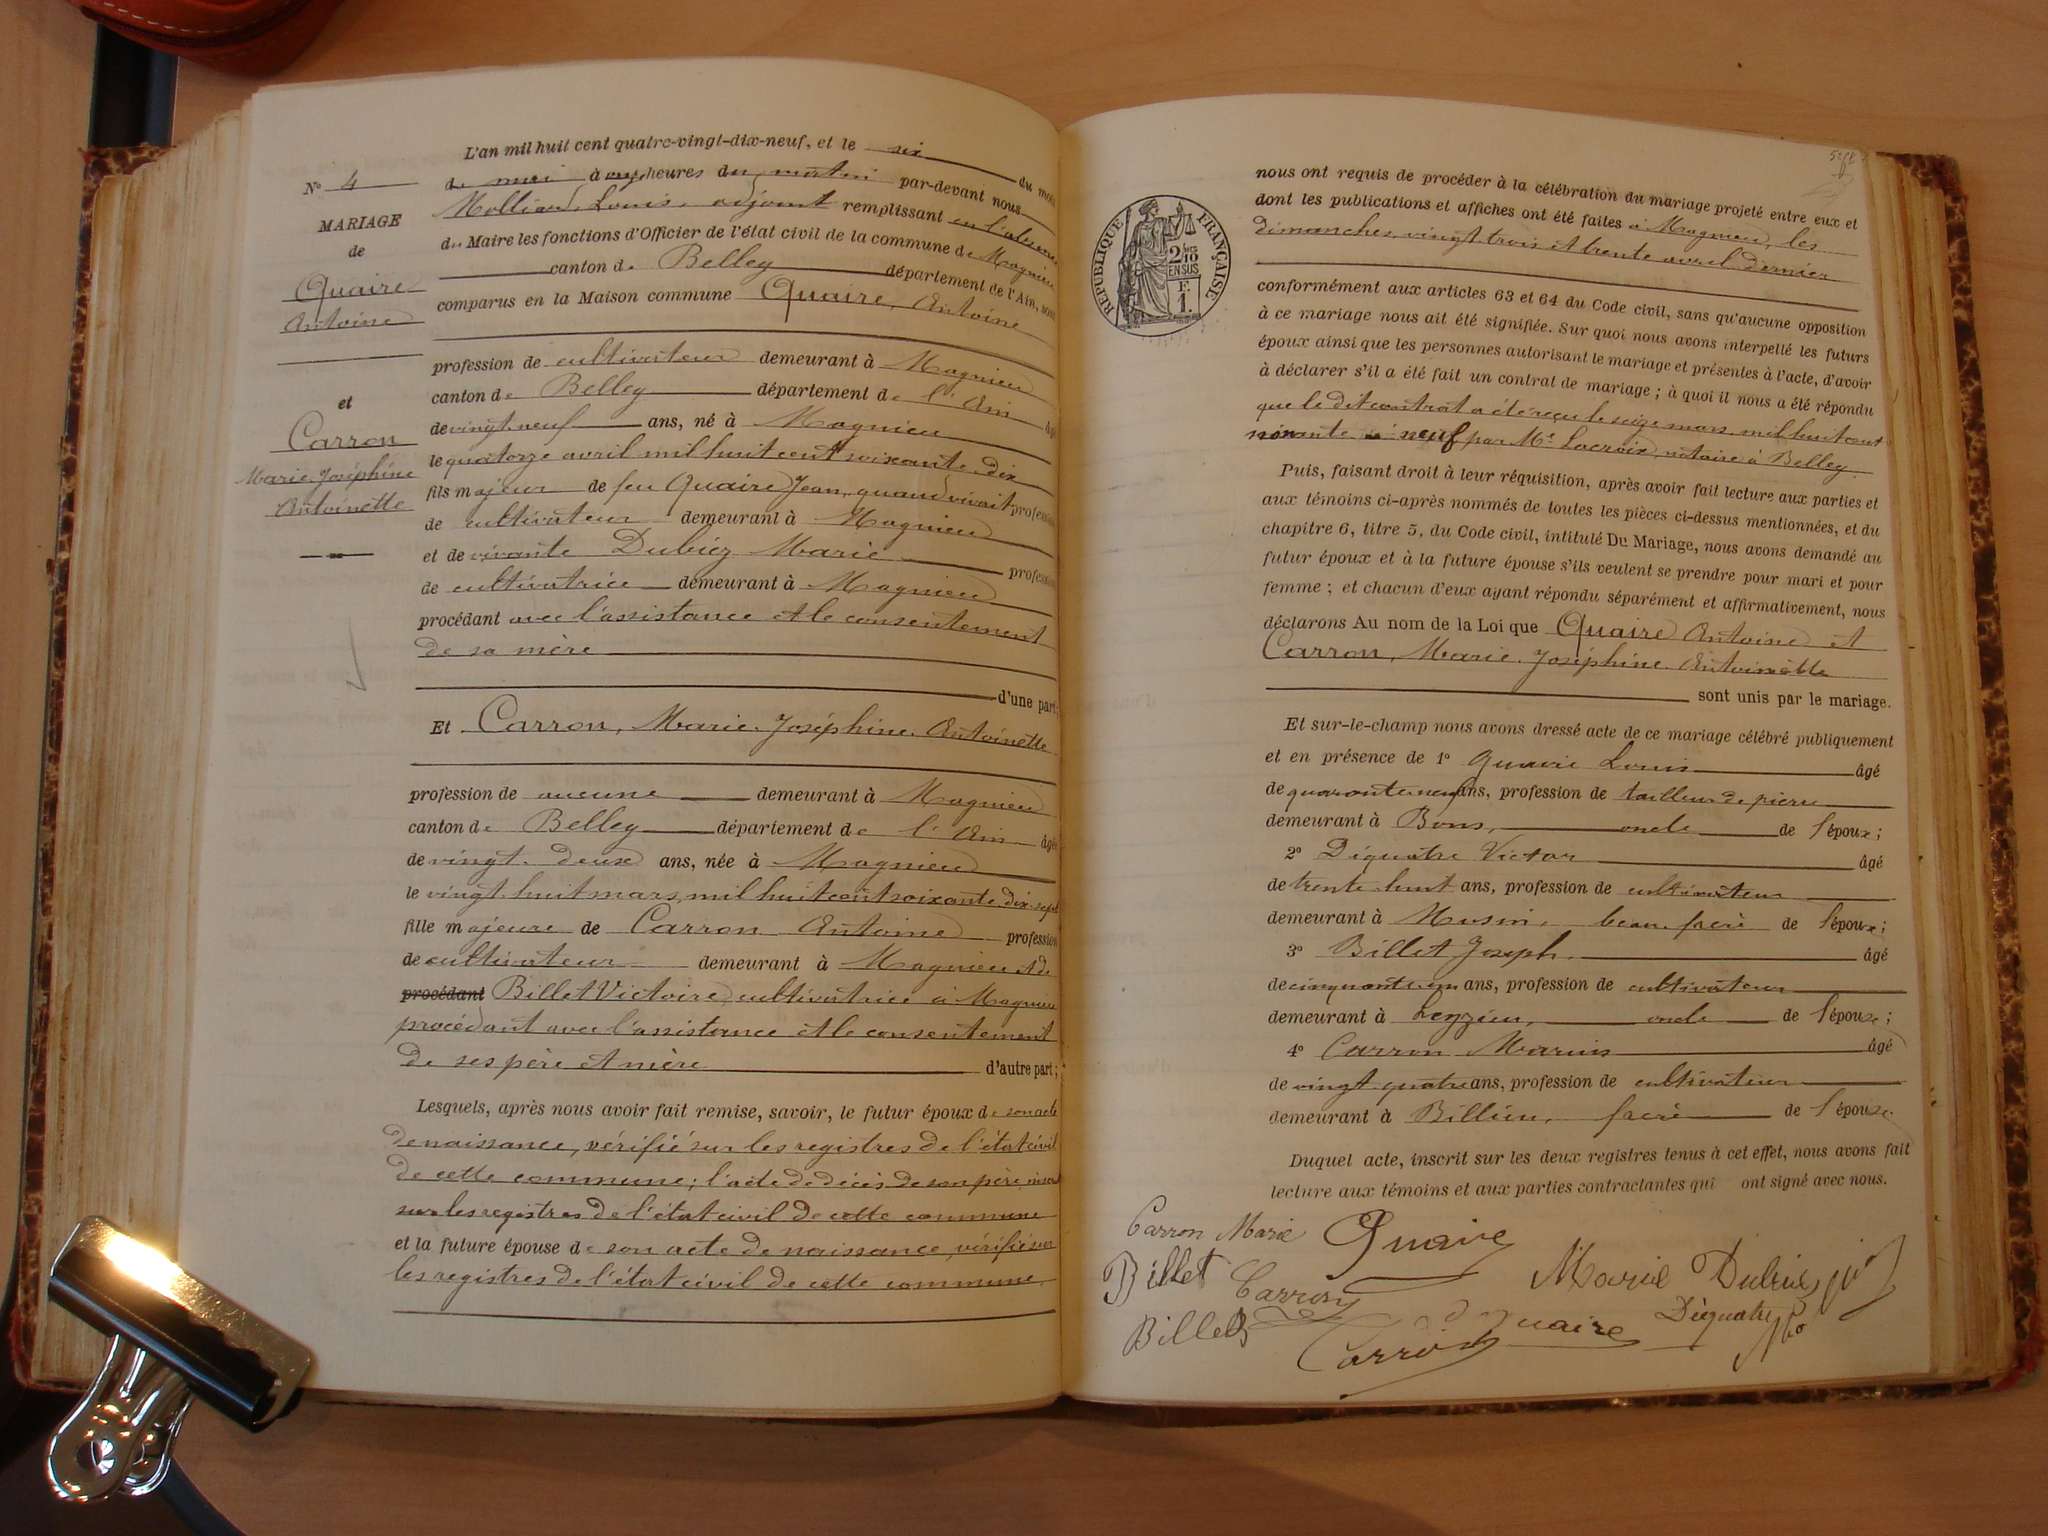 L'an mil huit cent quatre-vingt-dix-neuf, et le six du mois
N° 4
de mai à onze heures du matin par-devant nous
MARIAGE
de
Quaire
Antoine
et
Carron
Marie Joséphine
Antoinette
Louis, adjoint remplissant en l'absence
du Maire les fonctions d'Officier de l'état civil de la commune de Magnieu
canton de Belley département de l'Ain, sont
comparus en la Maison commune Quaire, Antoine
profession de cultivateur demeurant à Magnieu
canton de Belley département de l'Ain âgé
de vingt neuf ans, né à Magnieu
le quatorze avril mil huit cent soixante dix
fils majeur de feu Quaire Jean, quand vivait profession
de cultivateur demeurant à Magnieu
et de vivante Dubiez Marie profession
de cultivatrice demeurant à Magnieu
procédant avec l'assistance et le consentement
de sa mère
d'une part;
Et Carron, Marie Joséphine Antoinette
profession de aucune demeurant à Magnieu
canton de Belley département de l'Ain âgée
de vingt deux ans, née à Magnieu
le vingt huit mars, mil huit cent soixante dix sept
fille majeure de Carron Antoine profession
de cultivateur demeurant à Magnieu et de
procédant Billet Victoire, cultivatrice à Magnieu
procédant avec l'assistance et le consentement
de ses père et mère d'autre part;
Lesquels, après nous avoir fait remise, savoir, le futur époux de son acte
de naissance, vérifié sur les registres de l'état civil
de cette commune; l'acte de décès de son père, inscrit
sur les registres de l'état civil de cette commune
et la future épouse de son acte de naissance, vérifié sur
les registres de l'état civil de cette commune
RÉPUBLIQUE FRANÇAISE
2/10
EN SUS
F.
1.
nous ont requis de procéder à la célébration du mariage projeté entre eux et
dont les publications et affiches ont été faites à Magnieu, les
dimanches vingt trois et trente avril dernier
conformément aux articles 63 et 64 du Code civil, sans qu'aucune opposition
à ce mariage nous ait été signifiée. Sur quoi nous avons interpellé les futurs
époux ainsi que les personnes autorisant le mariage et présentes à l'acte, d'avoir
à déclarer s'il a été fait un contrat de mariage; à quoi il nous a été répondu
que le dit contrat a été reçu le seize mars mil huit cent
neuf par Me Lacroix, notaire à Belley
Puis, faisant droit à leur réquisition, après avoir fait lecture aux parties et
aux témoins ci-après nommés de toutes les pièces ci-dessus mentionnées, et du
chapitre 6, titre 5, du Code civil, intitulé Du Mariage, nous avons demandé au
futur époux et à la future épouse s'ils veulent se prendre pour mari et pour
femme; et chacun d'eux ayant répondu séparément et affirmativement, nous
déclarons Au nom de la Loi que Quaire Antoine et
Carron, Marie Joséphine Antoinette
sont unis par le mariage.
Et sur-le-champ nous avons dressé acte de ce mariage célébré publiquement
et en présence de 1° Quaire Louis âgé
de quarante neuf ans, profession de tailleur de pierre
demeurant à Bons, oncle de l'époux;
2° Déquatre Victor âgé
de trente huit ans, profession de cultivateur
demeurant à Musin, beau frère de l'époux;
3° Billet Joseph âgé
de cinquante un ans, profession de cultivateur
demeurant à Leyzieu, oncle de l'épouse;
4° Carron Marius âgé
de vingt quatre ans, profession de cultivateur
demeurant à Billieu, frère de l'épouse.
Duquel acte, inscrit sur les deux registres tenus à cet effet, nous avons fait
lecture aux témoins et aux parties contractantes qui ont signé avec nous.
Carron Marie Quaire
Billet Carron Marie
Billet Carron Quaire Déquatre